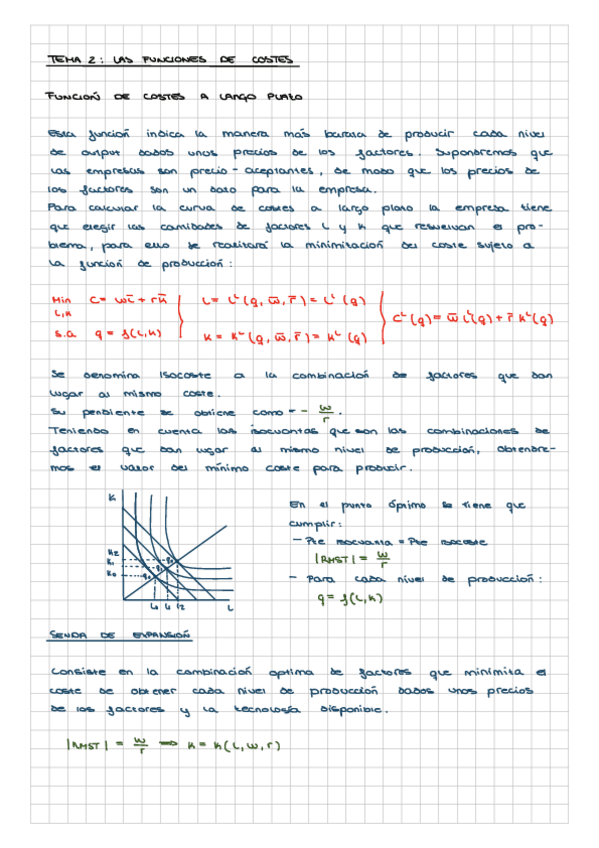 TEMA 2: LAS FUNCIONES DE COSTES
FUNCIÓN DE COSTES A LARGO PLAZO
Esta función indica la manera más barata de producir cada nivel
de output dados unos precios de los factores. Supondremos que
las empresas son precio-aceptantes, de modo que los precios de
los factores son un dato para la empresa.
Para calcular la curva de costes a largo plazo la empresa tiene
que elegir las cantidades de factores L y K que resuelvan el pro-
blema, para ello se realizará la minimización del coste sujeto a
la función de producción:
Min C = wL̄ + rK̄
L,K
s.a q = f(L,K)
L = Lᴸ(q, w̄, r̄) = Lᴸ(q)
K = Kᴸ(q, w̄, r̄) = Kᴸ(q)
Cᴸ(q) = w̄ Lᴸ(q) + r̄ Kᴸ(q)
Se denomina Isocoste a la combinación de factores que dan
lugar al mismo coste.
Su pendiente se obtiene como = - w/r.
Teniendo en cuenta las isocuantas que son las combinaciones de
factores que dan lugar al mismo nivel de producción, obtendre-
mos el valor del mínimo coste para producir.
K
K2
K1
K0
L0 L1 L2 L
En el punto óptimo se tiene que
cumplir:
- Pte isocuanta = Pte isocoste
|RMST| = w/r
- Para cada nivel de producción:
q = f(L,K)
SENDA DE EXPANSIÓN
Consiste en la combinación optima de factores que minimiza el
coste de obtener cada nivel de producción dados unos precios
de los factores y la tecnología disponible.
|RMST| = w/r ⟹ K = K(L,w,r)